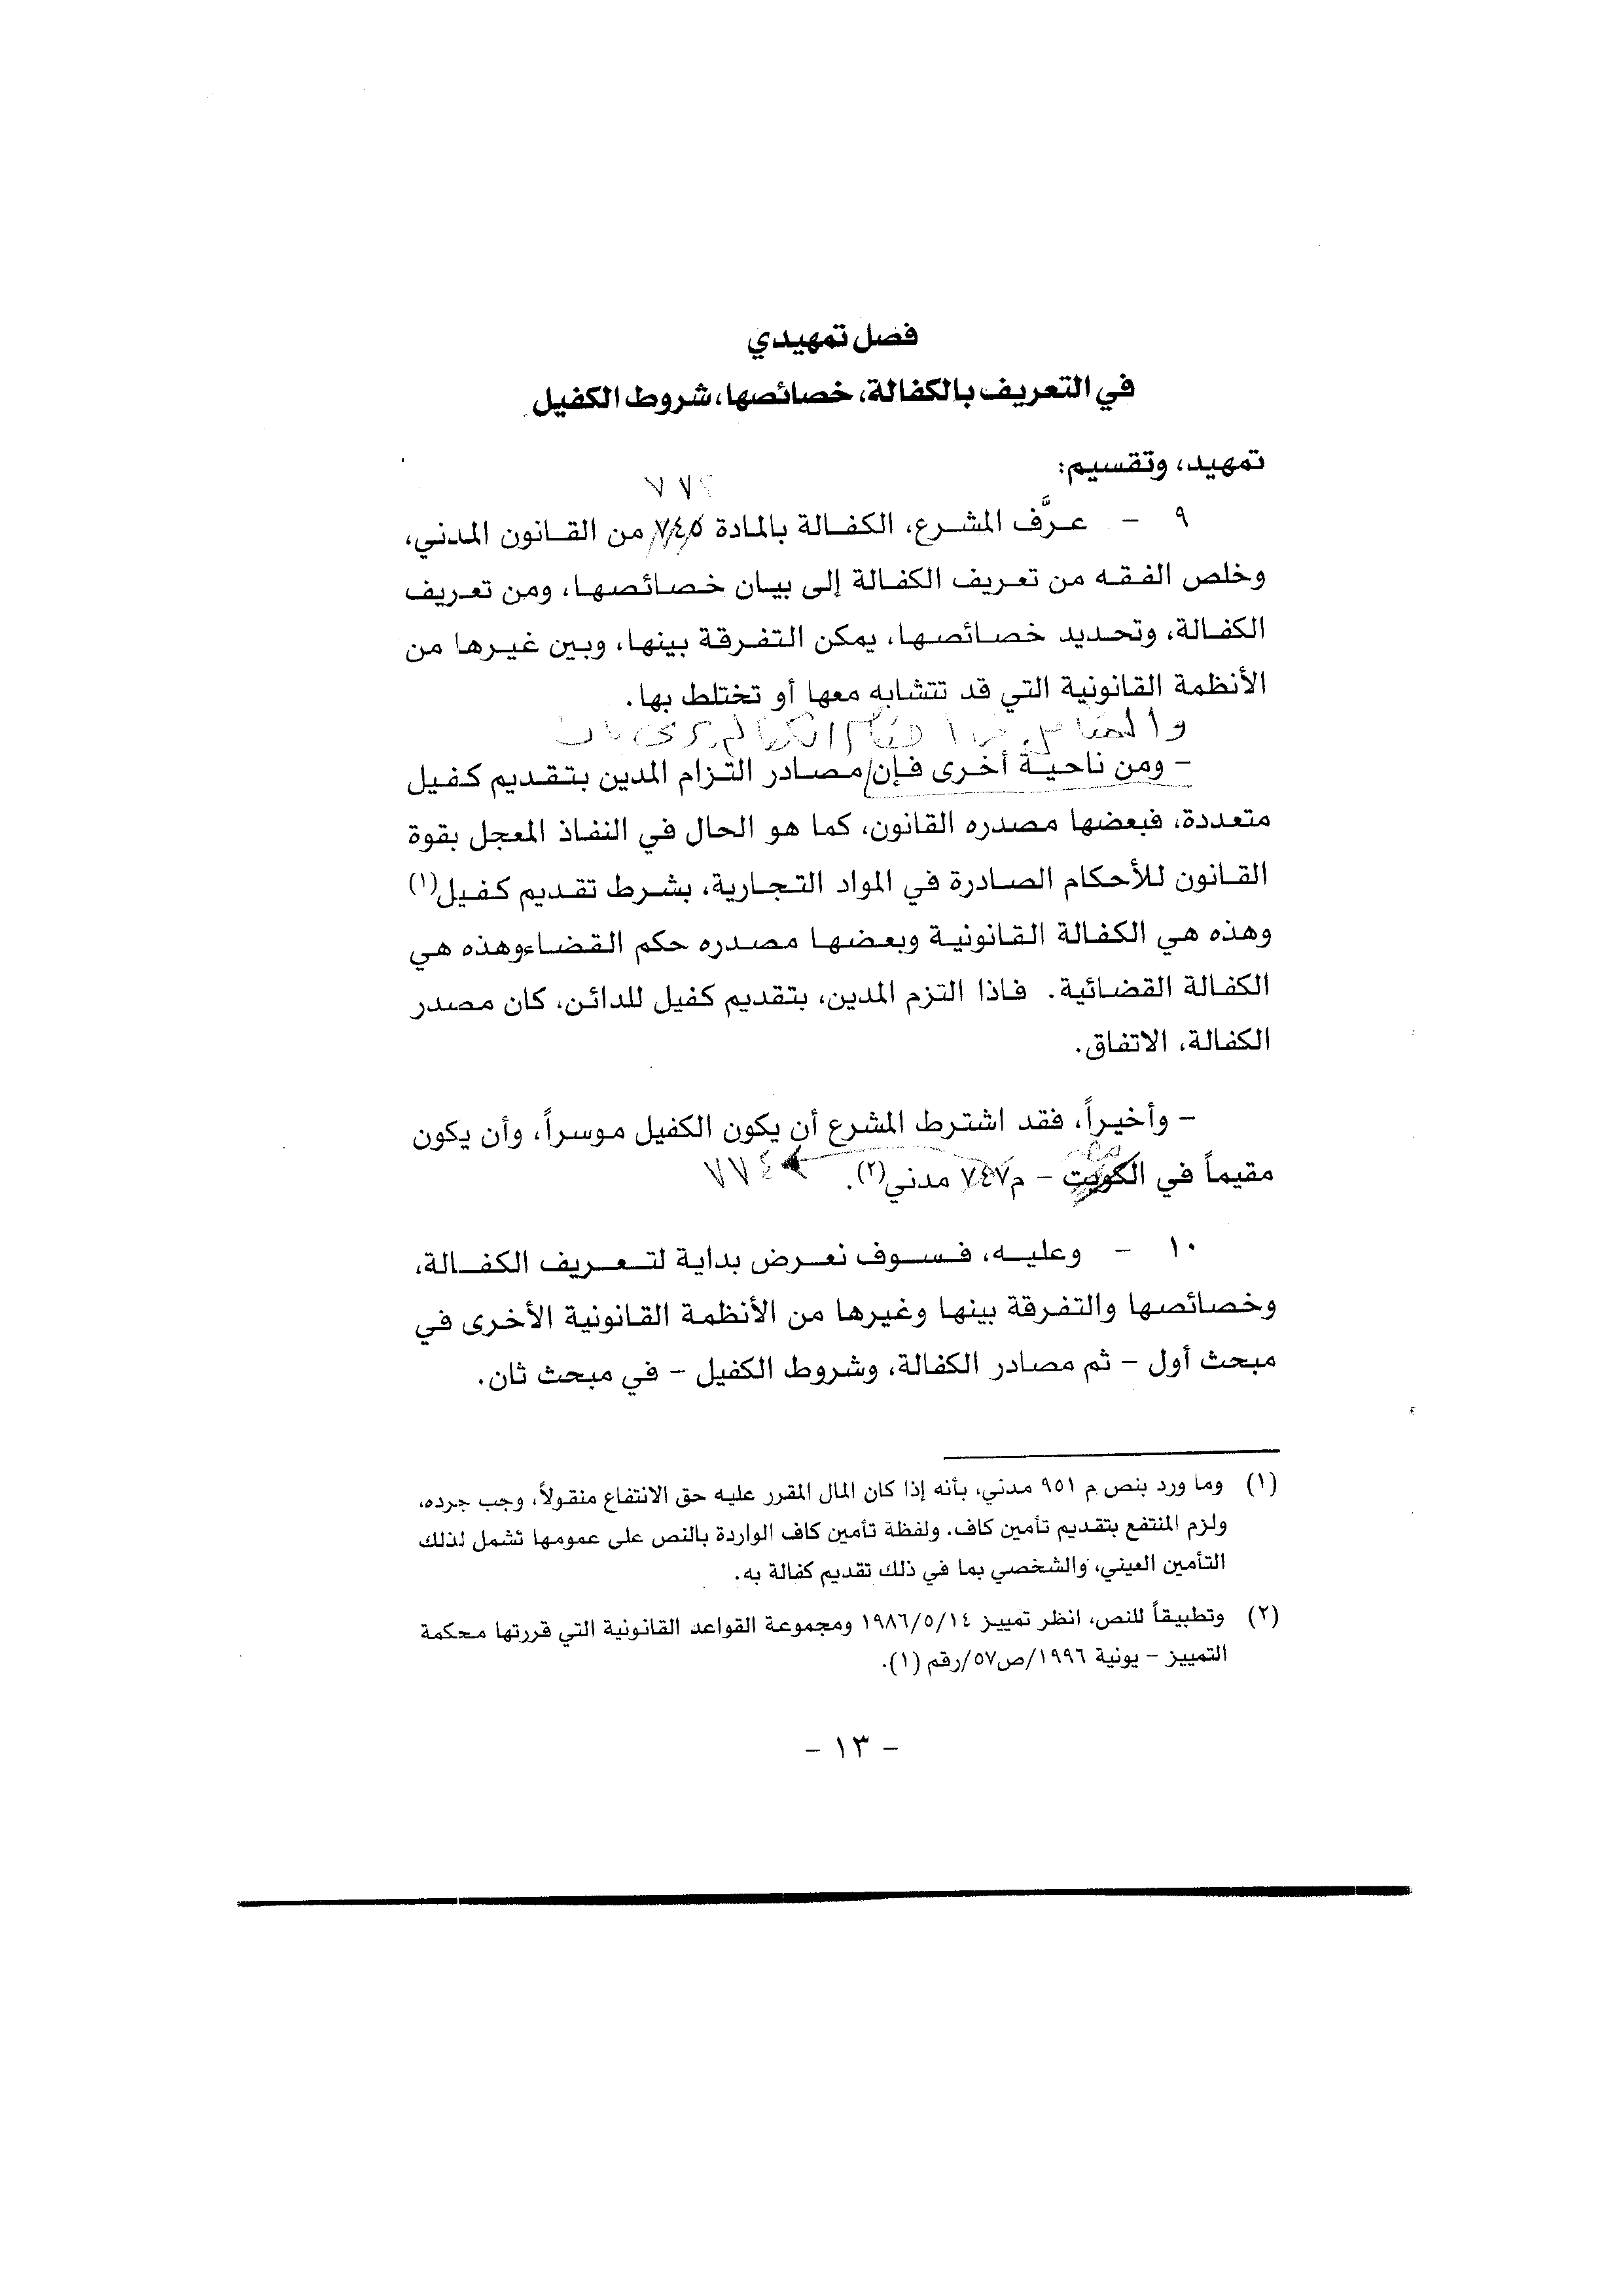 فصل تمهيدي
في التعريف بالكفالة، خصائصها، شروط الكفيل
تمهيد، وتقسيم:
٧٧٢
٩ - عرَّف المشرع، الكفالة بالمادة ٧٤٥ من القانون المدني،
وخلص الفقه من تعريف الكفالة إلى بيان خصائصها، ومن تعريف
الكفالة، وتحديد خصائصها، يمكن التفرقة بينها، وبين غيرها من
الأنظمة القانونية التي قد تتشابه معها أو تختلط بها.
- ومن ناحية أخرى فإن مصادر التزام المدين بتقديم كفيل
متعددة، فبعضها مصدره القانون، كما هو الحال في النفاذ المعجل بقوة
القانون للأحكام الصادرة في المواد التجارية، بشرط تقديم كفيل(١)
وهذه هي الكفالة القانونية وبعضها مصدره حكم القضاء وهذه هي
الكفالة القضائية. فاذا التزم المدين، بتقديم كفيل للدائن، كان مصدر
الكفالة، الاتفاق.
- وأخيراً، فقد اشترط المشرع أن يكون الكفيل موسراً، وأن يكون
مصر
مقيماً في الكويت - م٧٤٧ مدني(٢). ٧٧٤
١٠ - وعليه، فسوف نعرض بداية لتعريف الكفالة،
وخصائصها والتفرقة بينها وغيرها من الأنظمة القانونية الأخرى في
مبحث أول - ثم مصادر الكفالة، وشروط الكفيل - في مبحث ثان.
(١) وما ورد بنص م ٩٥١ مدني، بأنه إذا كان المال المقرر عليه حق الانتفاع منقولاً، وجب جرده،
ولزم المنتفع بتقديم تأمين كاف. ولفظة تأمين كاف الواردة بالنص على عمومها تشمل لذلك
التأمين العيني، والشخصي بما في ذلك تقديم كفالة به.
(٢) وتطبيقاً للنص، انظر تمييز ١٩٨٦/٥/١٤ ومجموعة القواعد القانونية التي قررتها محكمة
التمييز - يونية ١٩٩٦/ص٥٧/رقم (١).
- ١٣ -